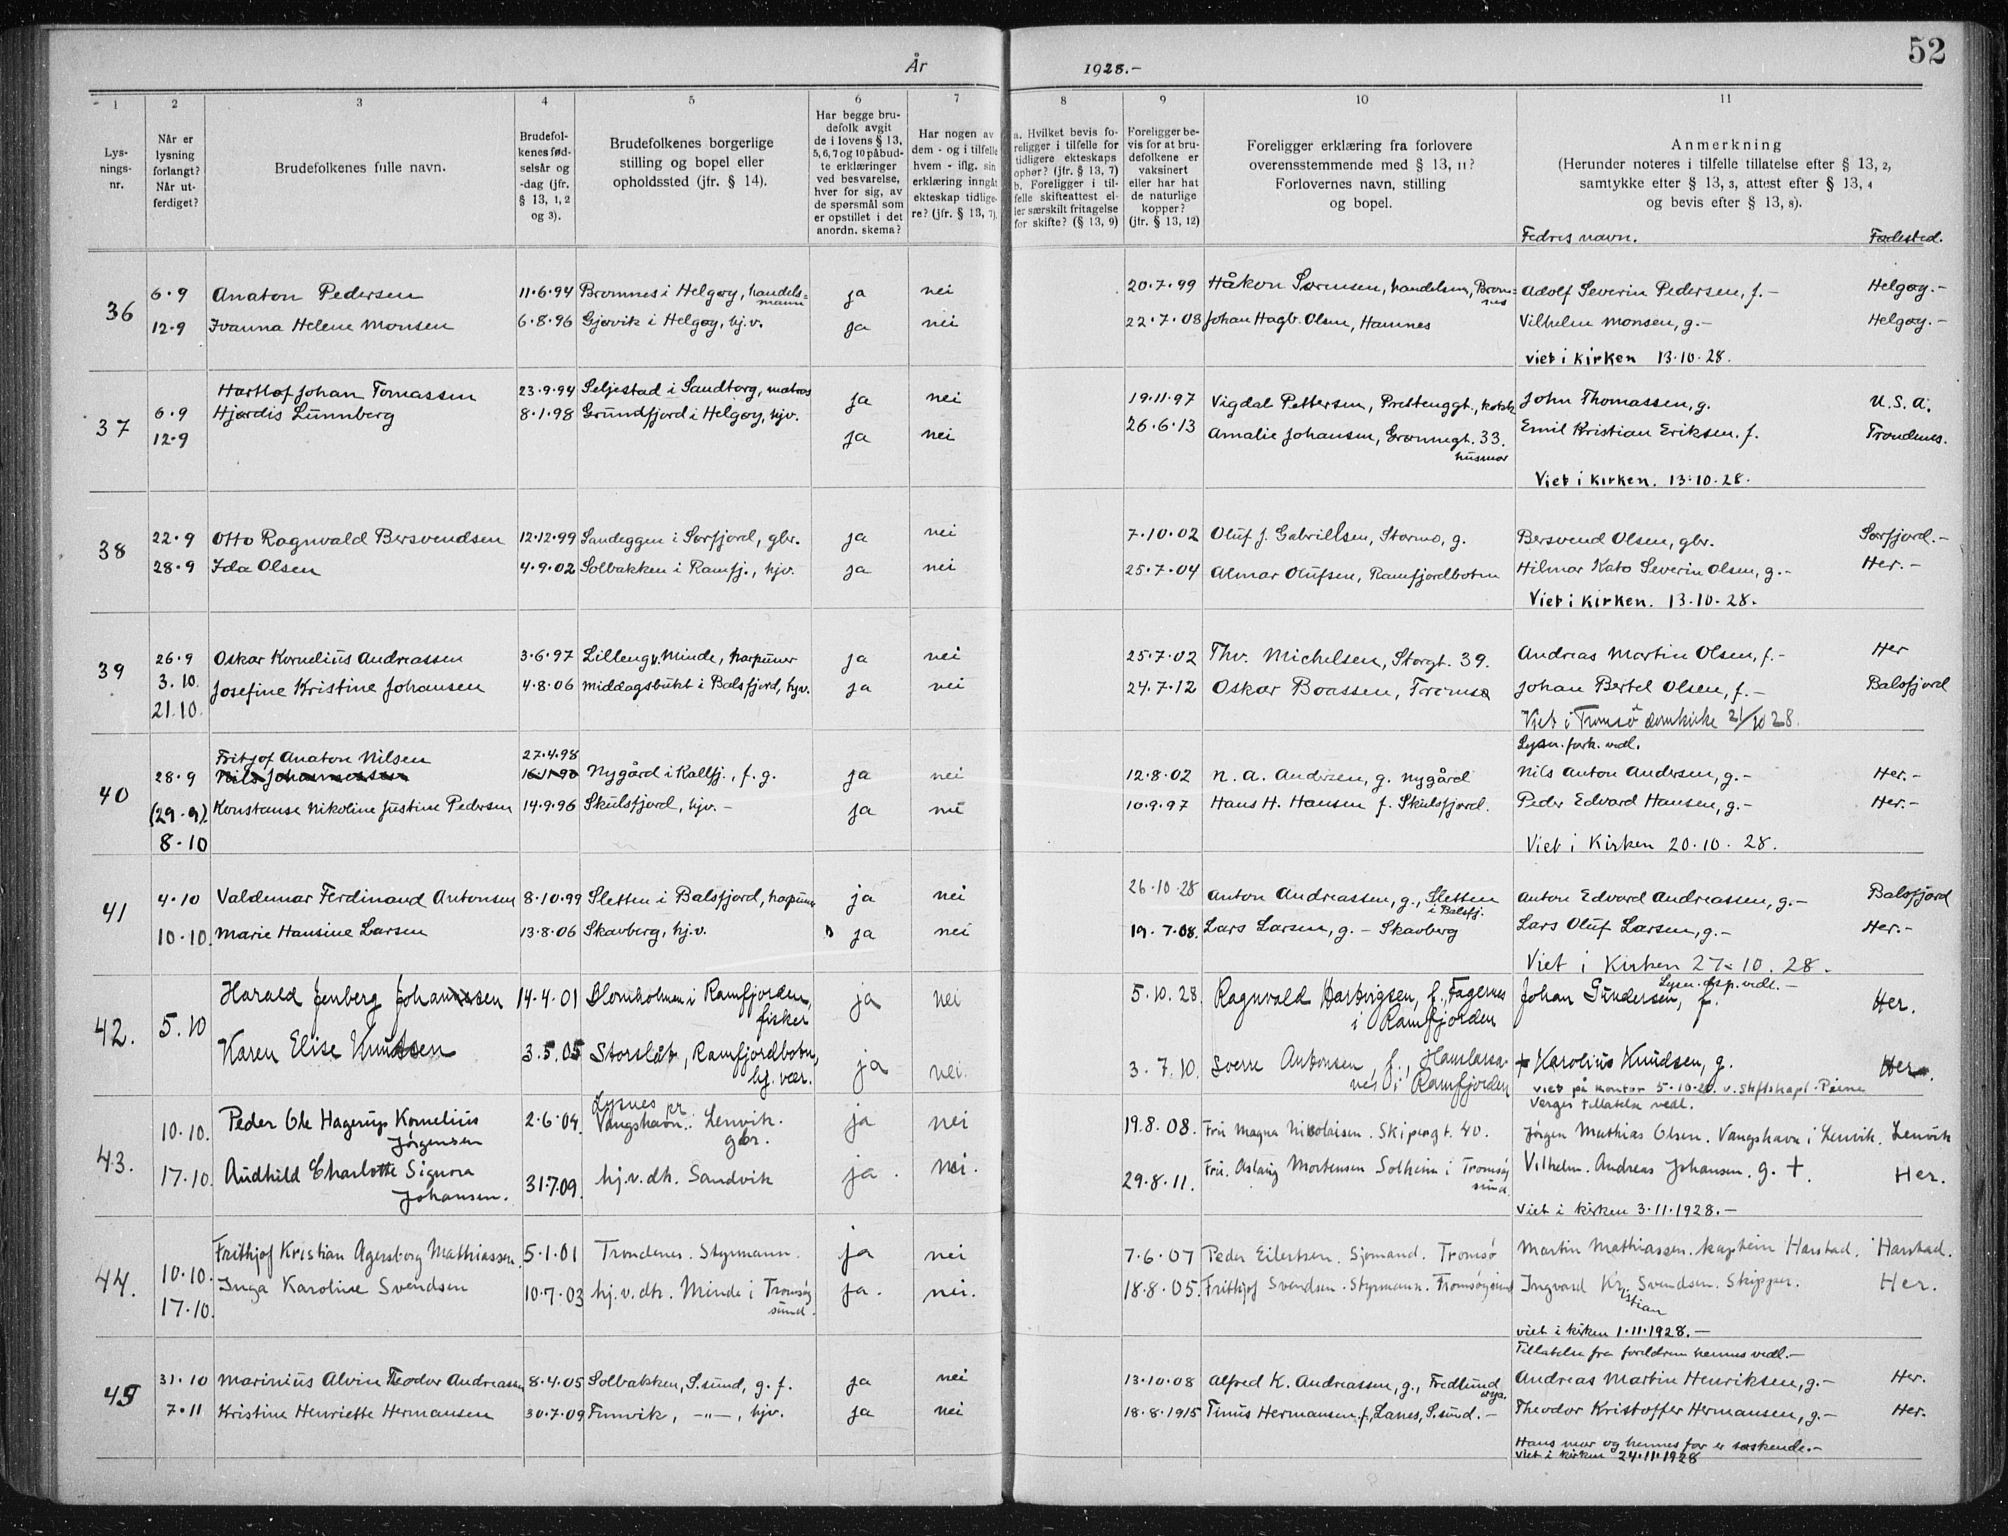 52
År 1928.-
1 2 3 4 5 6 7 8 9 10 11
Lys-
nings-
nr.
Når er
lysning
forlangt?
Når ut-
ferdiget?
Brudefolkenes fulle navn.
Brudefol-
kenes fød-
selsår og
-dag (jfr.
§ 13, 1, 2
og 3).
Brudefolkenes borgerlige
stilling og bopel eller
opholdssted (jfr. § 14).
Har begge bru-
defolk avgit
de i lovens § 13,
5, 6, 7 og 10 påbud-
te erklæringer
ved besvarelse,
hver for sig, av
de spørsmål som
er opstillet i det
anordn. skema?
Har nogen av
dem - og i tilfelle
hvem - iflg. sin
erklæring inngåt
ekteskap tidlige-
re? (jfr. § 13, 7).
a. Hvilket bevis fo-
religger i tilfelle for
tidligere ekteskaps
ophør? (jfr. § 13, 7)
b. Foreligger i til-
felle skifteattest el-
ler særskilt fritagelse
for skifte? (§ 13, 9)
Foreligger be-
vis for at bru-
defolkene er
vaksinert
eller har hat
de naturlige
kopper?
(jfr. § 13, 12)
Foreligger erklæring fra forlovere
overensstemmende med § 13, 11?
Forlovernes navn, stilling
og bopel.
Anmerkning
(Herunder noteres i tilfelle tillatelse efter § 13, 2,
samtykke efter § 13, 3, attest efter § 13, 4
og bevis efter § 13, 8).
Fedres navn. Fødested.
36 6.9 Anaton Pedersen 11.6.94 Bromnes i Helgøy, handels=mann ja nei 20.7.99 Håkon Sørensen, handelsm, Brom=nes Adolf Severin Pedersen, f.- Helgøy.-
12.9 Ivanna Helene Monsen 6.8.96 Gjøvik i Helgøy, hj.v. ja nei 22.7.08 Johan Hagb. Olsen, Hamnes Vilhelm Monsen, g.- Helgøy.-
viet i kirken 13.10.28.
37 Johan Tomassen 23.9.94 Seljestad i Sandtorg, matros ja nei 19.11.97 Vigdal Pettersen, John Thomassen, g. U.S.A.
6.9 Hjørdis Lunnberg 8.1.98 Grundfjord i Helgøy, hjv. 26.6.13 Amalie Johansen, Grønnegt. 33. husmor Emil Kristian Eriksen. f. Trondenes.
12.9 ja nei
Viet i kirken. 13.10.28.
38 22.9 Otto Ragnvald Bersvendsen 12.12.99 Sandeggen i Sørfjord, gbr. ja nei 7.10.02 Oluf J. Gabrillsen, Stormo, g. Bersvend Olsen, gbr. Sørfjord.-
28.9 Ida Olsen 4.9.02 Solbakken i Ramfj., hjv. ja nei 25.7.04 Almar Olufsen, Ramfjordbotn Hilmar Kato Severin Olsen, g.- Her.-
Viet i kirken. 13.10.28.
39 26.9 Oskar Kornelius Andreassen 3.6.97 Lilleng v. Minde, harpuner ja nei 25.7.02 Thv. Michelsen, Storgt. 39. Andreas Martin Olsen, f.- Her
3.10. Josefine Kristine Johansen 4.8.06 Middagsbukt i Balsfjord, hjv. ja nei 24.7.12 Oskar Boassen, Tromsø Johan Bertel Olsen, f.- Balsfjord
21.10. Viet i Tromsø domkirke 21/10 28.
Lysn. fork. vedl.
Fritjof Anaton Nilsen 27.4.98
40 28.9 Nils Johannessen Nygård i Kallfj., f.g. ja nei 12.8.02 N. A. Andersen, g. Nygård Nils Anton Andersen, g.- Her.-
(29.9) Konstanse Nikoline Justine Pedersen 14.9.96 Skulsfjord, hjv.- ja nei 10.9.97 Hans H. Hansen f. Skulsfjord. Peder Edvard Hansen, g.- Her.-
8.10 Viet i Kirken 20.10.28.
41 4.10 Valdemar Ferdinand Antonsen 8.10.99 Sletten i Balsfjord, harpuner ja nei 26.10.28 Anton Andreassen, g., Sletten i Balsfj. Anton Edvard Andreassen, g.- Balsfjord
10.10. Marie Hansine Larsen 13.8.06 Skavberg, hj.v. ja nei 19.7.08. Lars Larsen, g.- Skavberg Lars Oluf Larsen, g.- Her.-
Viet i Kirken 27.10.28.
Lysn. disp. vedl.-
42. 5.10 Harald Jenberg Johannessen 14.4.01 Holmen i Ramfjorden, fisker ja nei 5.10.28. Ragnvald Hartvigsen, f., Fagernes i Ramfjorden Johan Gundersen, f. Her.
Karen Elise Knudsen 3.5.05 Storslåt, Ramfjordbotn, hj. vær. ja nei. 3.7.10. Sverre Antonsen, f., i Ramfjorden + Karolius Knudsen, g. Her.
viet på kontor 5.10.28. v. Stiftskapl.
Verges tillatelse vedl.
43. 10.10. Peder Ole Hagerup Kornelius Jørgensen 2.6.04. Lysnes pr. Vangshavn. Lenvik. gbr. ja nei 19.8.08. Fru Magna Nikolaisen. Skipergt. 40. Jørgen Mathias Olsen. Vangshavn i Lenvik. Lenvik
17.10. Audhild Charlotte Signora Johansen. 31.7.09. hj.v.dtr. Sandvik ja. nei. 29.8.11. Fru. Aslaug Mortensen Solheim i Tromsøysund. Vilhelm. Andreas Johansen. g. +. Her.
Viet i kirken 3.11.1928.-
44. 10.10. Frithjof Kristian Agersborg Mathiassen 5.1.01 Trondenes. Styrmann. ja nei 7.6.07 Peder Eilertsen. Sjømand. Tromsø Martin Mathiassen. kaptein Harstad. Harstad.
17.10. Inga Karoline Svendsen 10.7.03 hj.v.dtr. Minde i Tromsøysund. ja. nei. 18.8.05. Frithjof Svendsen. Styrmann. Tromsøysund Ingvard Kristian Svendsen. Skipper. Her.
viet i kirken 1.11.1928.-
Tillatelse fra foreldrene hennes vedl.-
45 31.10 Marinius Alvin Theodor Andreassen 8.4.05 Solbakken, S.sund, g. f. ja nei 13.10.08 Alfred K. Andreassen, g., Fredlund Andreas Martin Henriksen, g.- Her.
7.11 Kristine Henriette Hermansen 30.7.09 Finnvik, -"-, hjv. ja nei 18.8.1915 Tinus Hermansen f, Lanes, S.sund.- Theodor Kristoffer Hermansen, g.- Her.
Hans mor og hennes far er søskende.-
Viet i kirken 24.11.1928